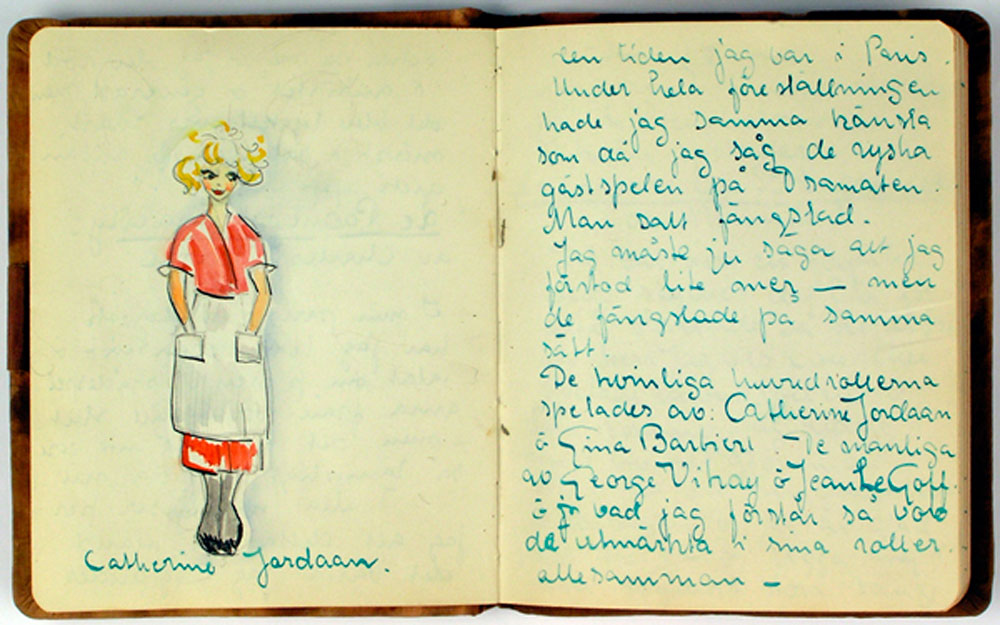 Catherine Jordaan.
den tiden jag var i Paris.
Under hela föreställningen
hade jag samma känsla
som då jag såg de ryska
gästspelen på Dramaten.
Man satt fängslad.
Jag måste ju säga att jag
förstod lite mer — men
de fängslade på samma
sätt.
De kvinliga huvudrollerna
spelades av: Catherine Jordaan
& Gina Barbieri. — De manliga
av George Vitray & Jean Le Goff.
& vad jag förstår så voro
de utmärkta i sina roller.
allesamman —